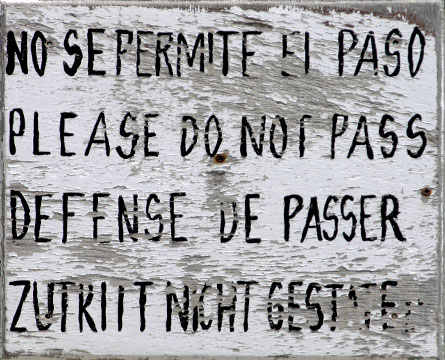 NO SE PERMITE EL PASO
PLEASE DO NOT PASS
DEFENSE DE PASSER
ZUTRITT NICHT GESTATTET